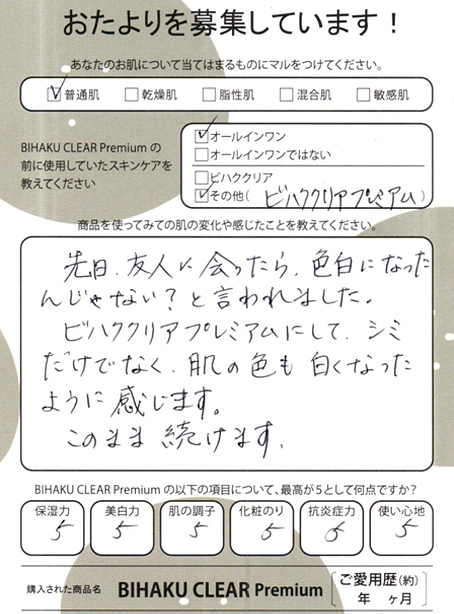 おたよりを募集しています！
あなたのお肌について当てはまるものにマルをつけてください。
普通肌 乾燥肌 脂性肌 混合肌 敏感肌
BIHAKU CLEAR Premium の
前に使用していたスキンケアを
教えてください
オールインワン
オールインワンではない
ビハククリア
その他（ビハククリアプレミアム）
商品を使ってみての肌の変化や感じたことを教えてください。
先日、友人に会ったら、色白になった
んじゃない？と言われました。
ビハククリアプレミアムにして、シミ
だけでなく、肌の色も白くなった
ように感じます。
このまま続けます。
BIHAKU CLEAR Premium の以下の項目について、最高が5として何点ですか？
保湿力 美白力 肌の調子 化粧のり 抗炎症力 使い心地
5 5 5 5 6 5
購入された商品名 BIHAKU CLEAR Premium
ご愛用歴（約）
年 ヶ月